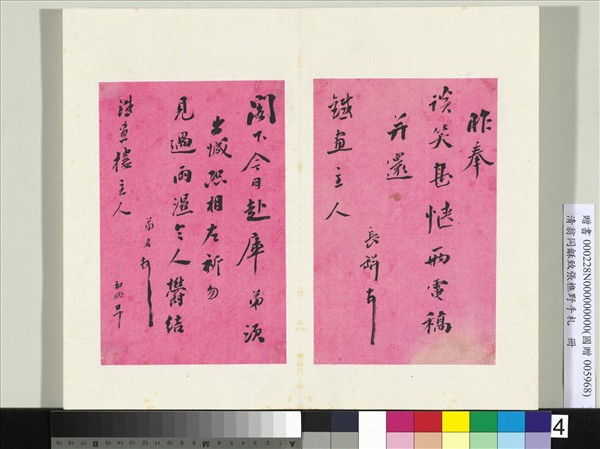 昨奉
談笑甚愜兩電稿
并還
鐵畫主人
長
閣下今日赴庫弟須
出城恐相左祈勿
見過雨濕令人鬱結
鐵畫樓主人
弟名
初四早
贈書 000228N000000000(國贈 005968)
清翁同龢致張樵野手札 冊
4